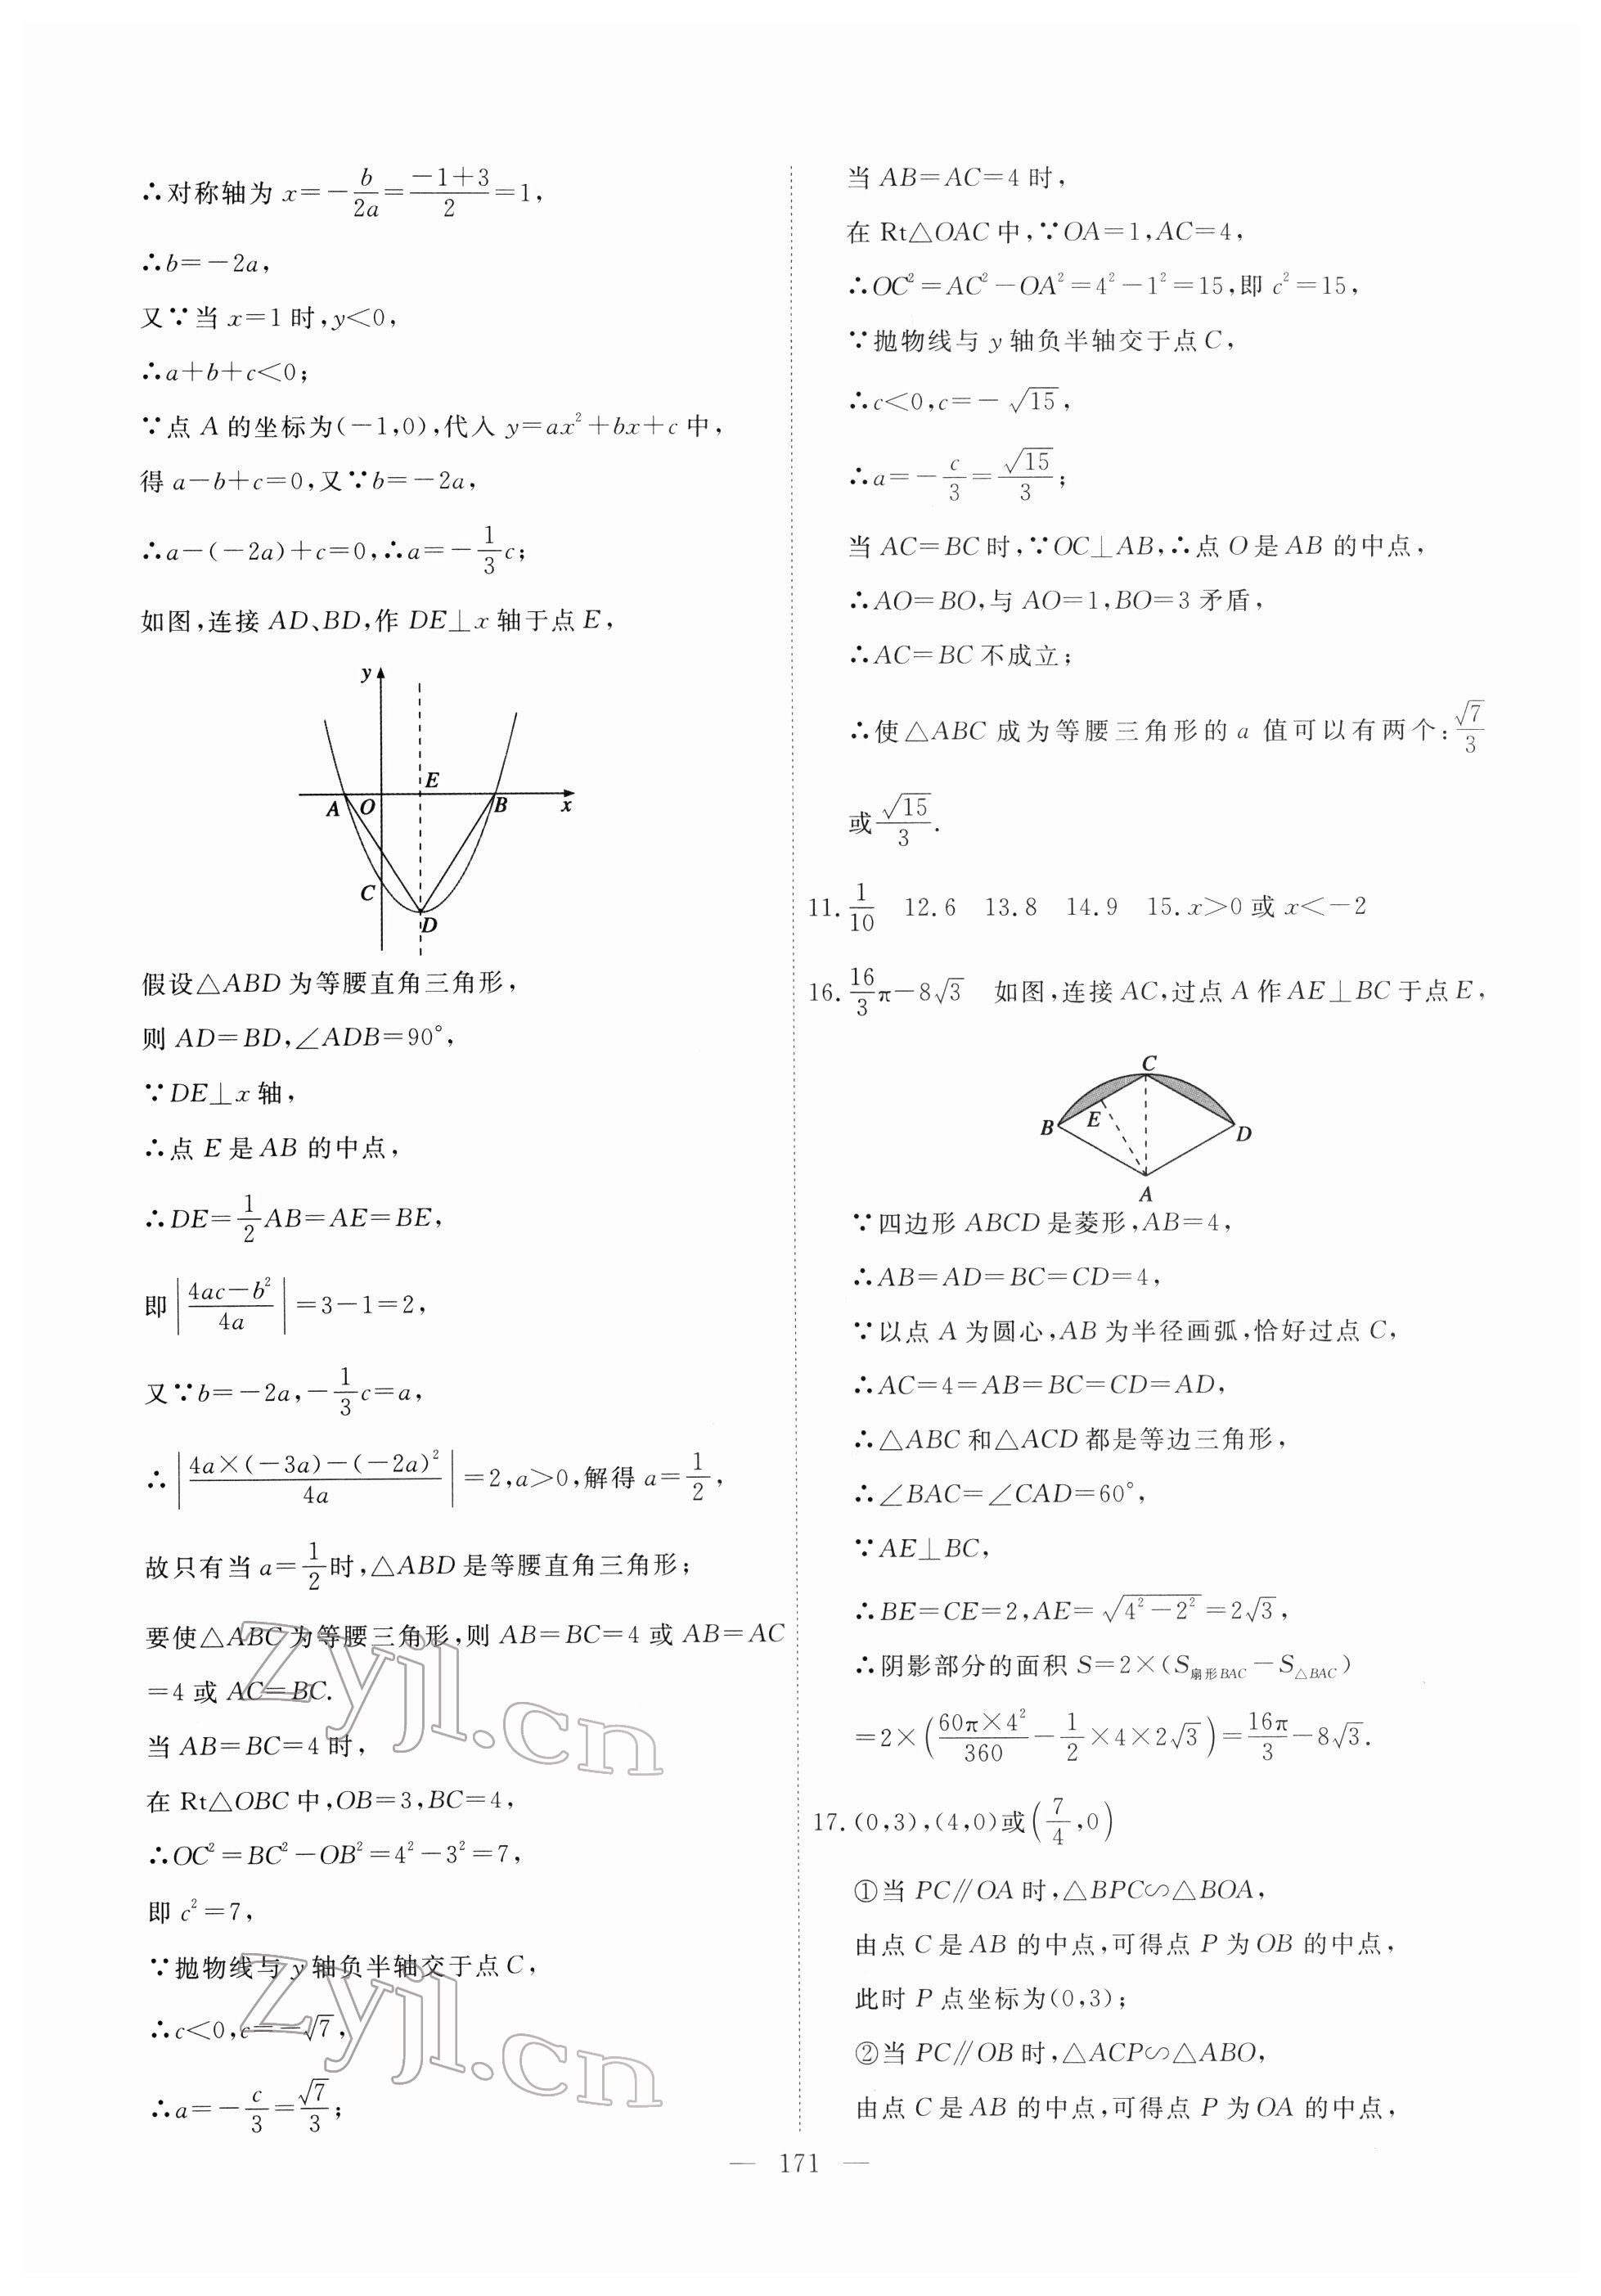 ∴对称轴为 x=-b/2a=(-1+3)/2=1,
∴b=-2a,
又∵当 x=1 时,y<0,
∴a+b+c<0;
∵点 A 的坐标为(-1,0),代入 y=ax²+bx+c 中,
得 a-b+c=0,又∵b=-2a,
∴a-(-2a)+c=0,∴a=-1/3c;
如图,连接 AD、BD,作 DE⊥x 轴于点 E,
y
E
A O B x
C
D
假设△ABD 为等腰直角三角形,
则 AD=BD,∠ADB=90°,
∵DE⊥x 轴,
∴点 E 是 AB 的中点,
∴DE=1/2AB=AE=BE,
即|(4ac-b²)/4a|=3-1=2,
又∵b=-2a,-1/3c=a,
∴|(4a×(-3a)-(-2a)²)/4a|=2,a>0,解得 a=1/2,
故只有当 a=1/2时,△ABD 是等腰直角三角形;
要使△ABC 为等腰三角形,则 AB=BC=4 或 AB=AC
=4 或 AC=BC.
当 AB=BC=4 时,
在 Rt△OBC 中,OB=3,BC=4,
∴OC²=BC²-OB²=4²-3²=7,
即 c²=7,
∵抛物线与 y 轴负半轴交于点 C,
∴c<0,c=-√7,
∴a=-c/3=√7/3;
当 AB=AC=4 时,
在 Rt△OAC 中,∵OA=1,AC=4,
∴OC²=AC²-OA²=4²-1²=15,即 c²=15,
∵抛物线与 y 轴负半轴交于点 C,
∴c<0,c=-√15,
∴a=-c/3=√15/3;
当 AC=BC 时,∵OC⊥AB,∴点 O 是 AB 的中点,
∴AO=BO,与 AO=1,BO=3 矛盾,
∴AC=BC 不成立;
∴使△ABC 成为等腰三角形的 a 值可以有两个:√7/3
或√15/3.
11.1/10 12.6 13.8 14.9 15.x>0 或 x<-2
16.16/3π-8√3 如图,连接 AC,过点 A 作 AE⊥BC 于点 E,
C
B E D
A
∵四边形 ABCD 是菱形,AB=4,
∴AB=AD=BC=CD=4,
∵以点 A 为圆心,AB 为半径画弧,恰好过点 C,
∴AC=4=AB=BC=CD=AD,
∴△ABC 和△ACD 都是等边三角形,
∴∠BAC=∠CAD=60°,
∵AE⊥BC,
∴BE=CE=2,AE=√(4²-2²)=2√3,
∴阴影部分的面积 S=2×(S扇形BAC-S△BAC)
=2×(60π×4²/360-1/2×4×2√3)=16π/3-8√3.
17.(0,3),(4,0)或(7/4,0)
①当 PC∥OA 时,△BPC∽△BOA,
由点 C 是 AB 的中点,可得点 P 为 OB 的中点,
此时 P 点坐标为(0,3);
②当 PC∥OB 时,△ACP∽△ABO,
由点 C 是 AB 的中点,可得点 P 为 OA 的中点,
— 171 —
zyjl.cn
zyjl.cn